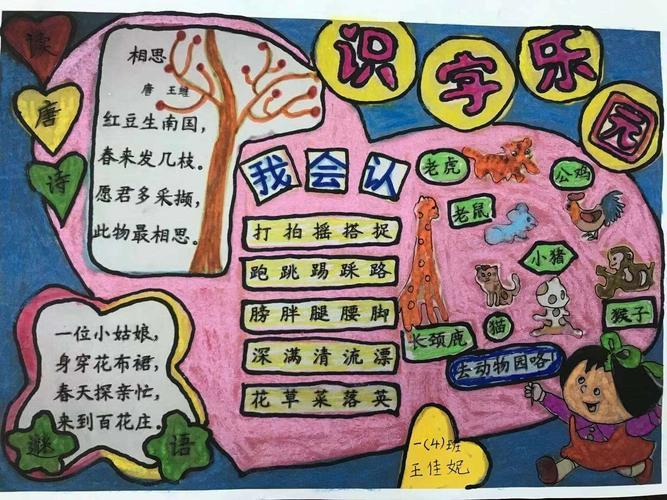 识字乐园
读唐诗
相思
唐 王维
红豆生南国，
春来发几枝。
愿君多采撷，
此物最相思。
我会认
打拍摇搭捉
跑跳踢踩路
膀胖腿腰脚
深满清流漂
花草菜落英
老虎
公鸡
老鼠
小猪
猫
猴子
长颈鹿
去动物园咯！
一位小姑娘，
身穿花布裙，
春天探亲忙，
来到百花庄。
谜语
一(4)班
王佳妮